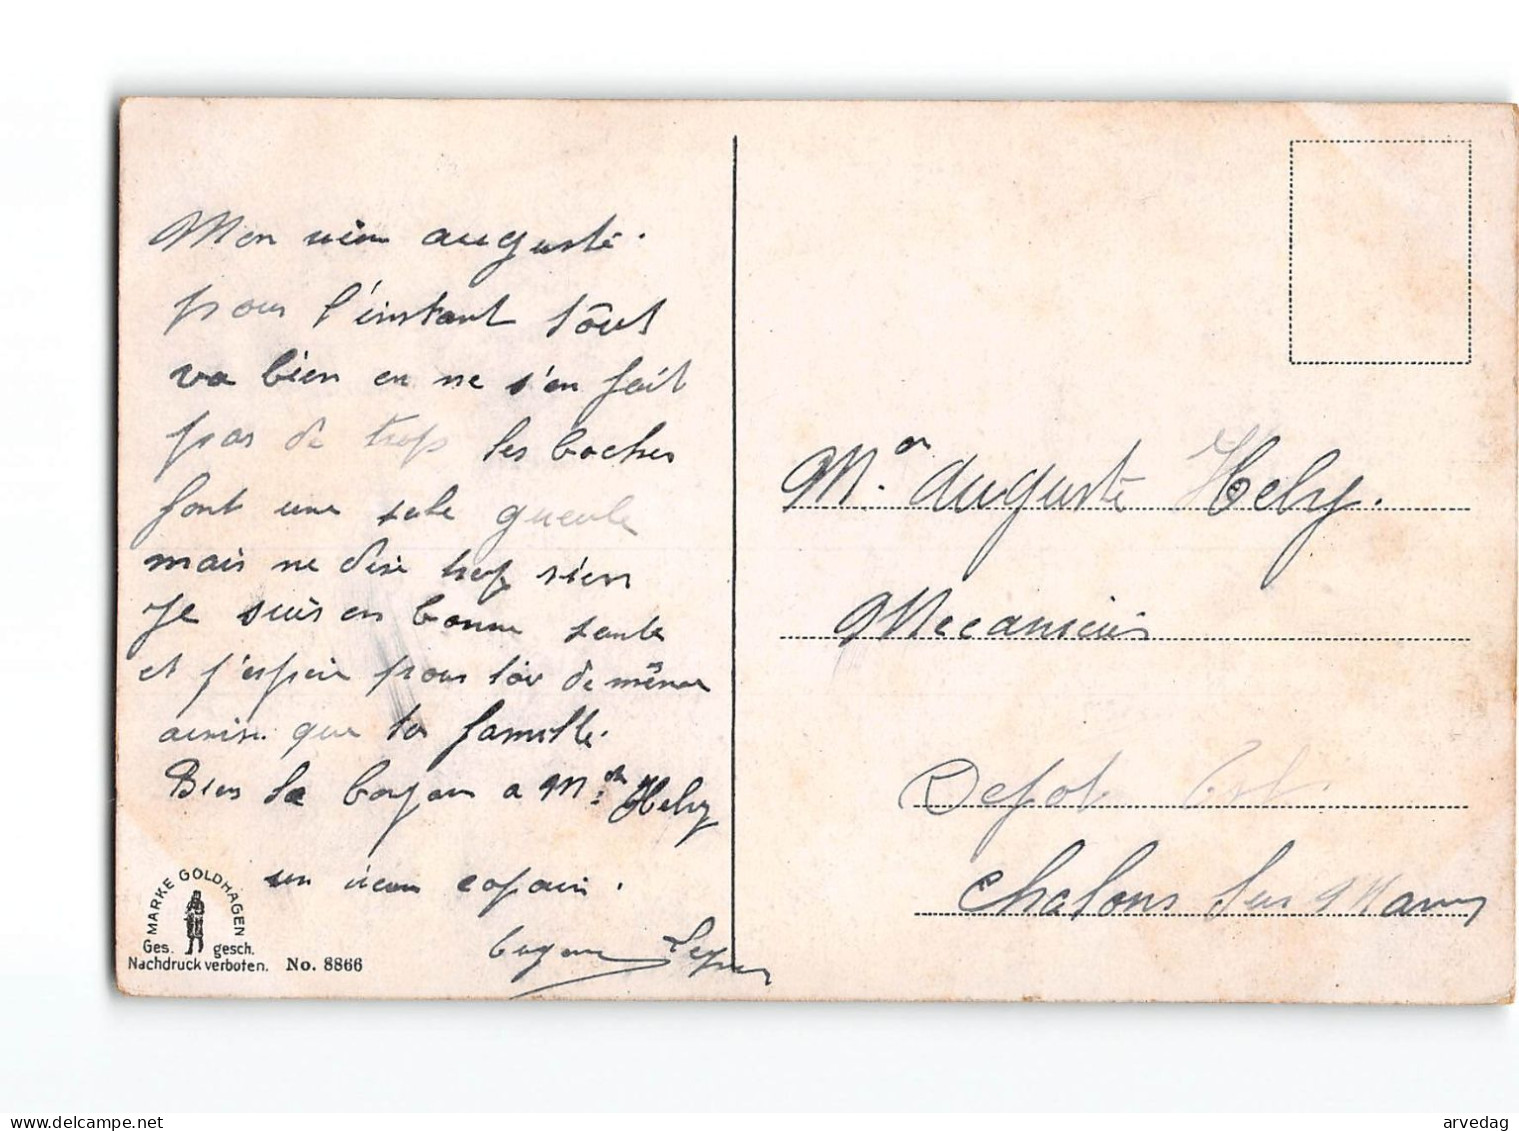 Mon vieu auguste.
pour l'instant tôut
va bien on ne s'en fait
pas de trop les boches
font une sale gueule
mais ne dise trop rien
Je suis en bonne sante
et j'espere pour toi de même
ainsi. que ta famille.
Bien le bonjour a Mme Hely
un vieux copain.
Mr. Auguste Hely.
Mecanicien
Depot Est.
Chalons Sur Marne
MARKE GOLDHAGEN
Ges. gesch.
Nachdruck verboten. No. 8866
delcampe.net
arvedag